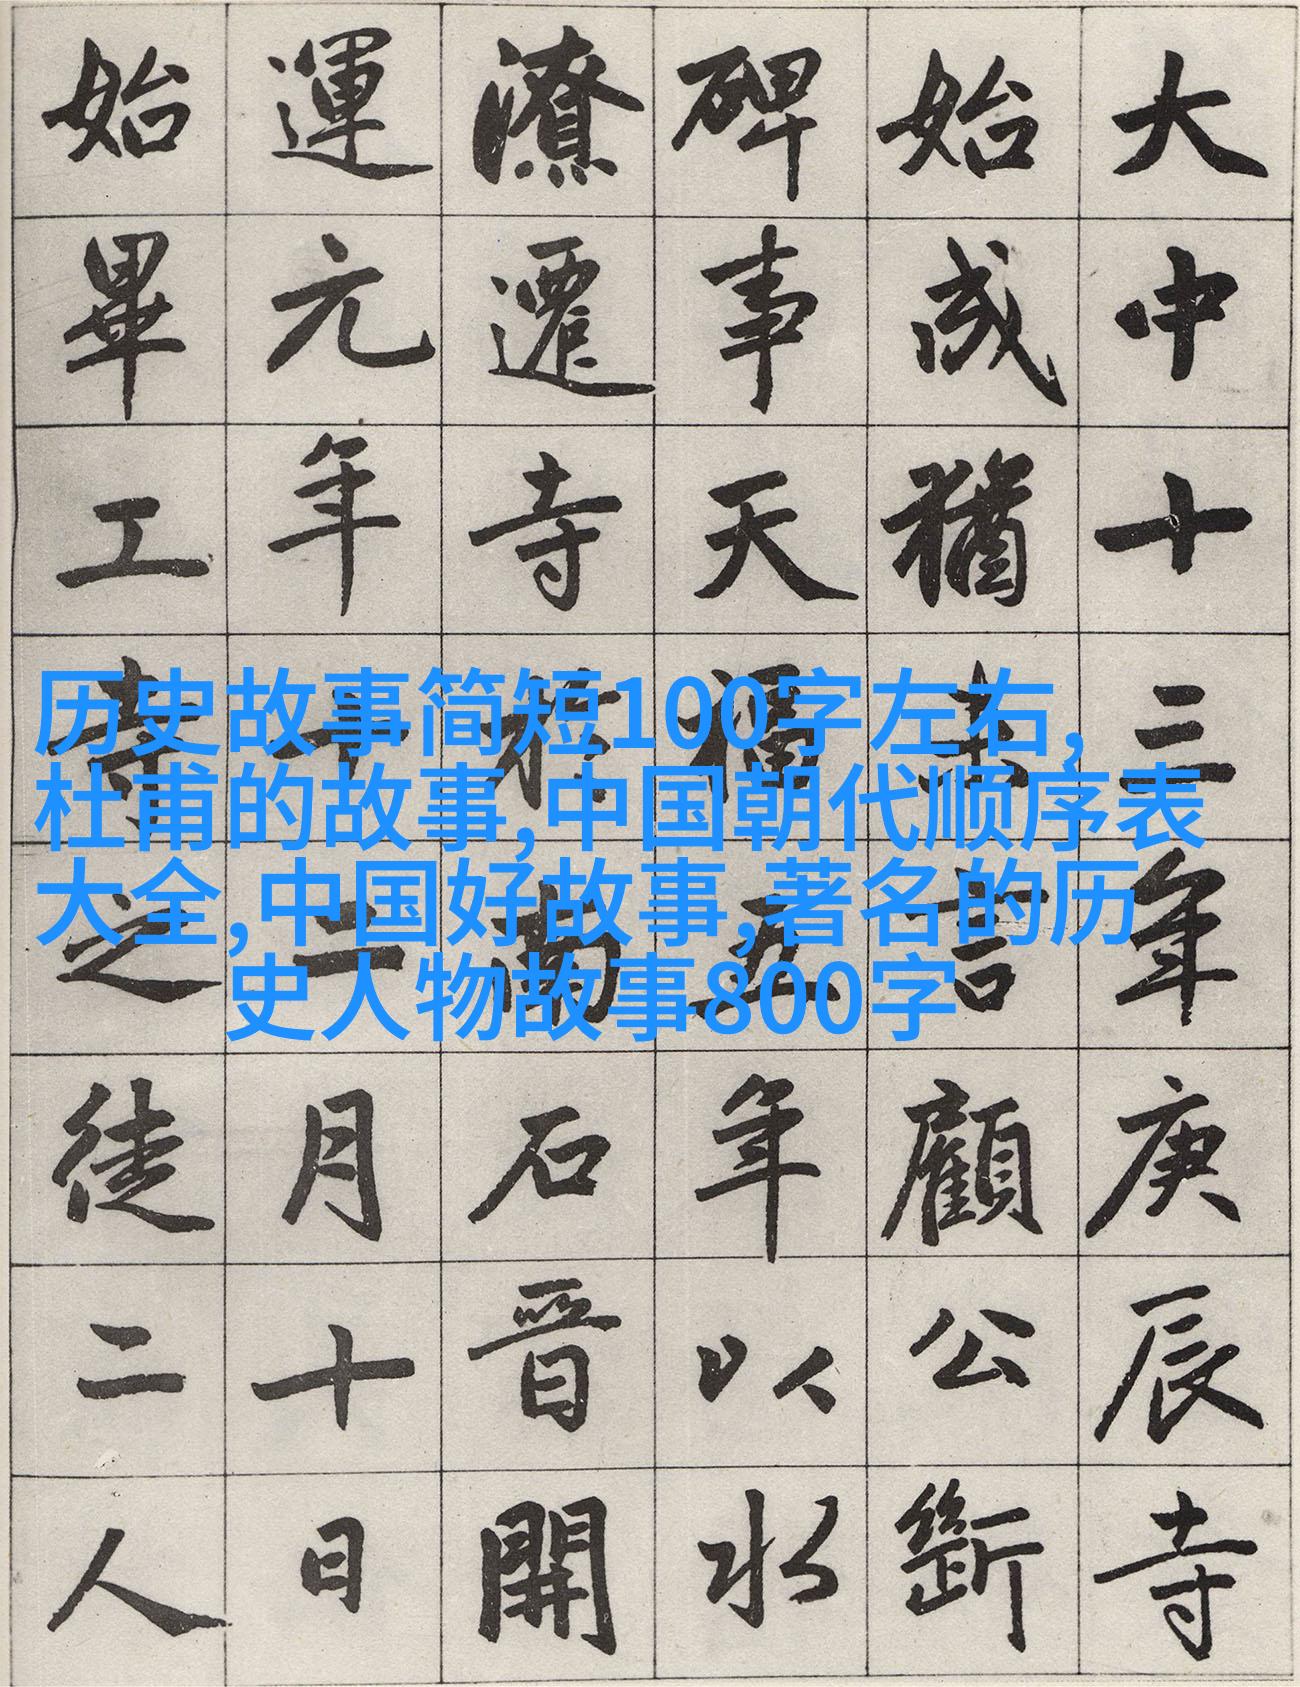 历史故事简短100字左右,
杜甫的故事,中国朝代顺序表
大全,中国好故事,著名的历
史人物故事800字
大中十三年庚辰寺
始成猶未言顧公
碑事天福五年以水
潦遷寺於南石晉開
運元年十二月十日
始畢工寺之徒二人